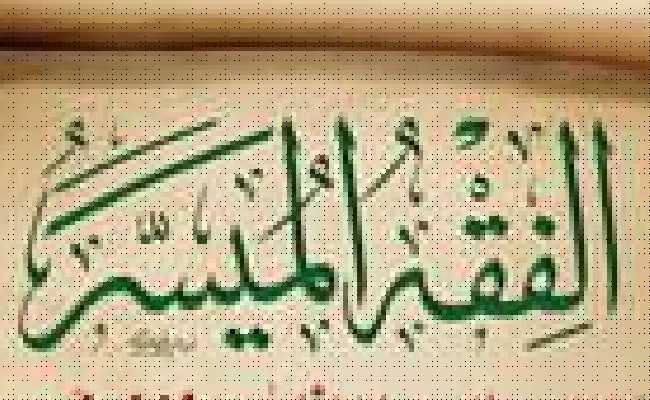 الْفِقْهُ الْمُيَسَّرُ